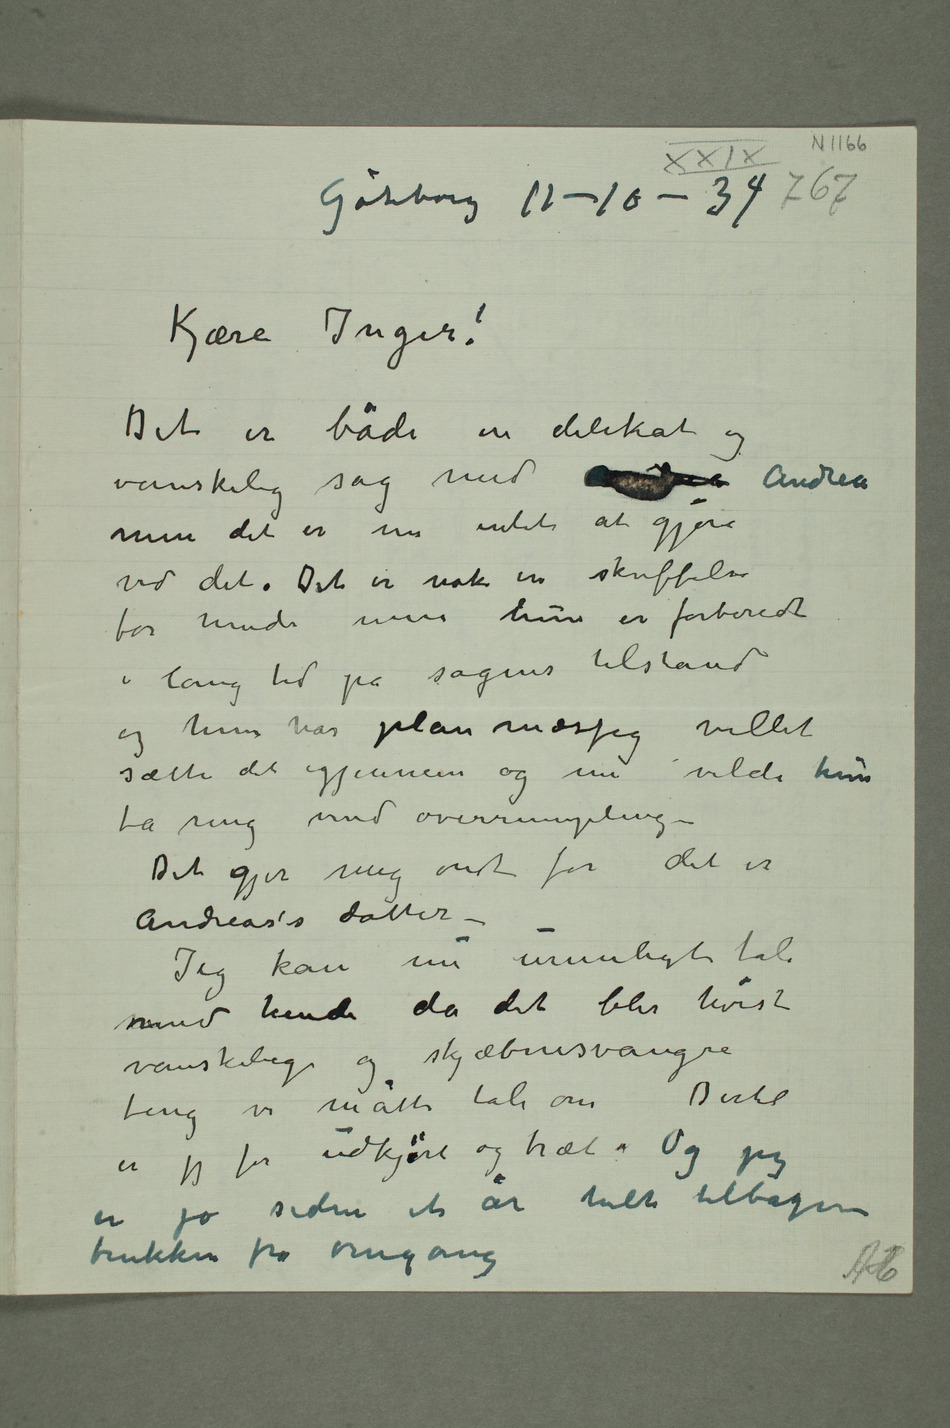 N 1166
XXIX
Göteborg 11–10–34 767
Kjære Inger!
Det er både en delikat og
vanskelig sag med Andrea
men det er nu intet at gjøre
ved det. Det er nok en skuffelse
for hende men hun er forberedt
i lang tid på sagens tilstand
og hun har planmæssig villet
sætte det igjennem og nu vilde hun
ta mig med overrumpling –
Det gjør mig ondt for det er
Andreas's datter –
Jeg kan nu umuligt tale
med hende da det blir høist
vanskelige og skjæbnesvangre
ting vi måtte tale om Dertil
er jeg for udkjørt og træt. Og jeg
er jo siden et år helt tilbage
trukken fra omgang